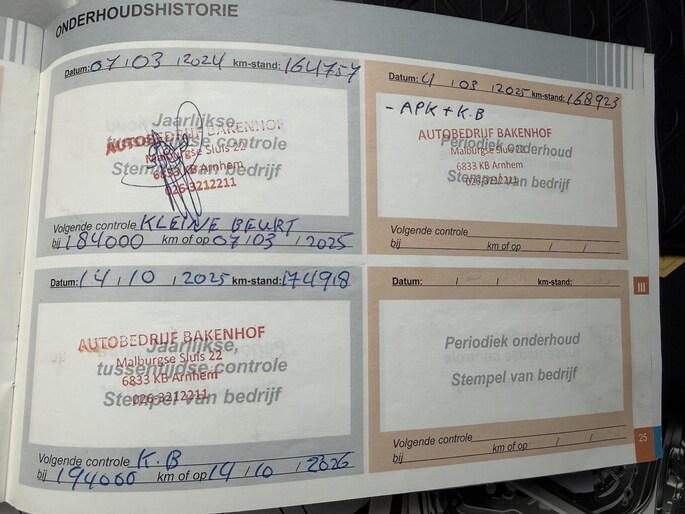 ONDERHOUDSHISTORIE
Datum: 07 / 03 / 2024 km-stand: 164757
Jaarlijkse,
tussentijdse controle
Stempel van bedrijf
AUTOBEDRIJF BAKENHOF
Malburgse Sluis 22
6833 KB Arnhem
026-3212211
Volgende controle KLEINE BEURT
bij 184000 km of op 07 / 03 / 2025
Datum: / 03 / 2025 km-stand: 168923
- APK + K.B
AUTOBEDRIJF BAKENHOF
Malburgse Sluis 22
6833 KB Arnhem
026-3212211
Periodiek onderhoud
Stempel van bedrijf
Volgende controle
bij km of op / /
Datum: 14 / 10 / 2025 km-stand: 174918
AUTOBEDRIJF BAKENHOF
Malburgse Sluis 22
6833 KB Arnhem
026-3212211
Jaarlijkse,
tussentijdse controle
Stempel van bedrijf
Volgende controle K.B
bij 194000 km of op 14 / 10 / 2026
Datum: / / km-stand:
Periodiek onderhoud
Stempel van bedrijf
Volgende controle
bij km of op / /
III
25